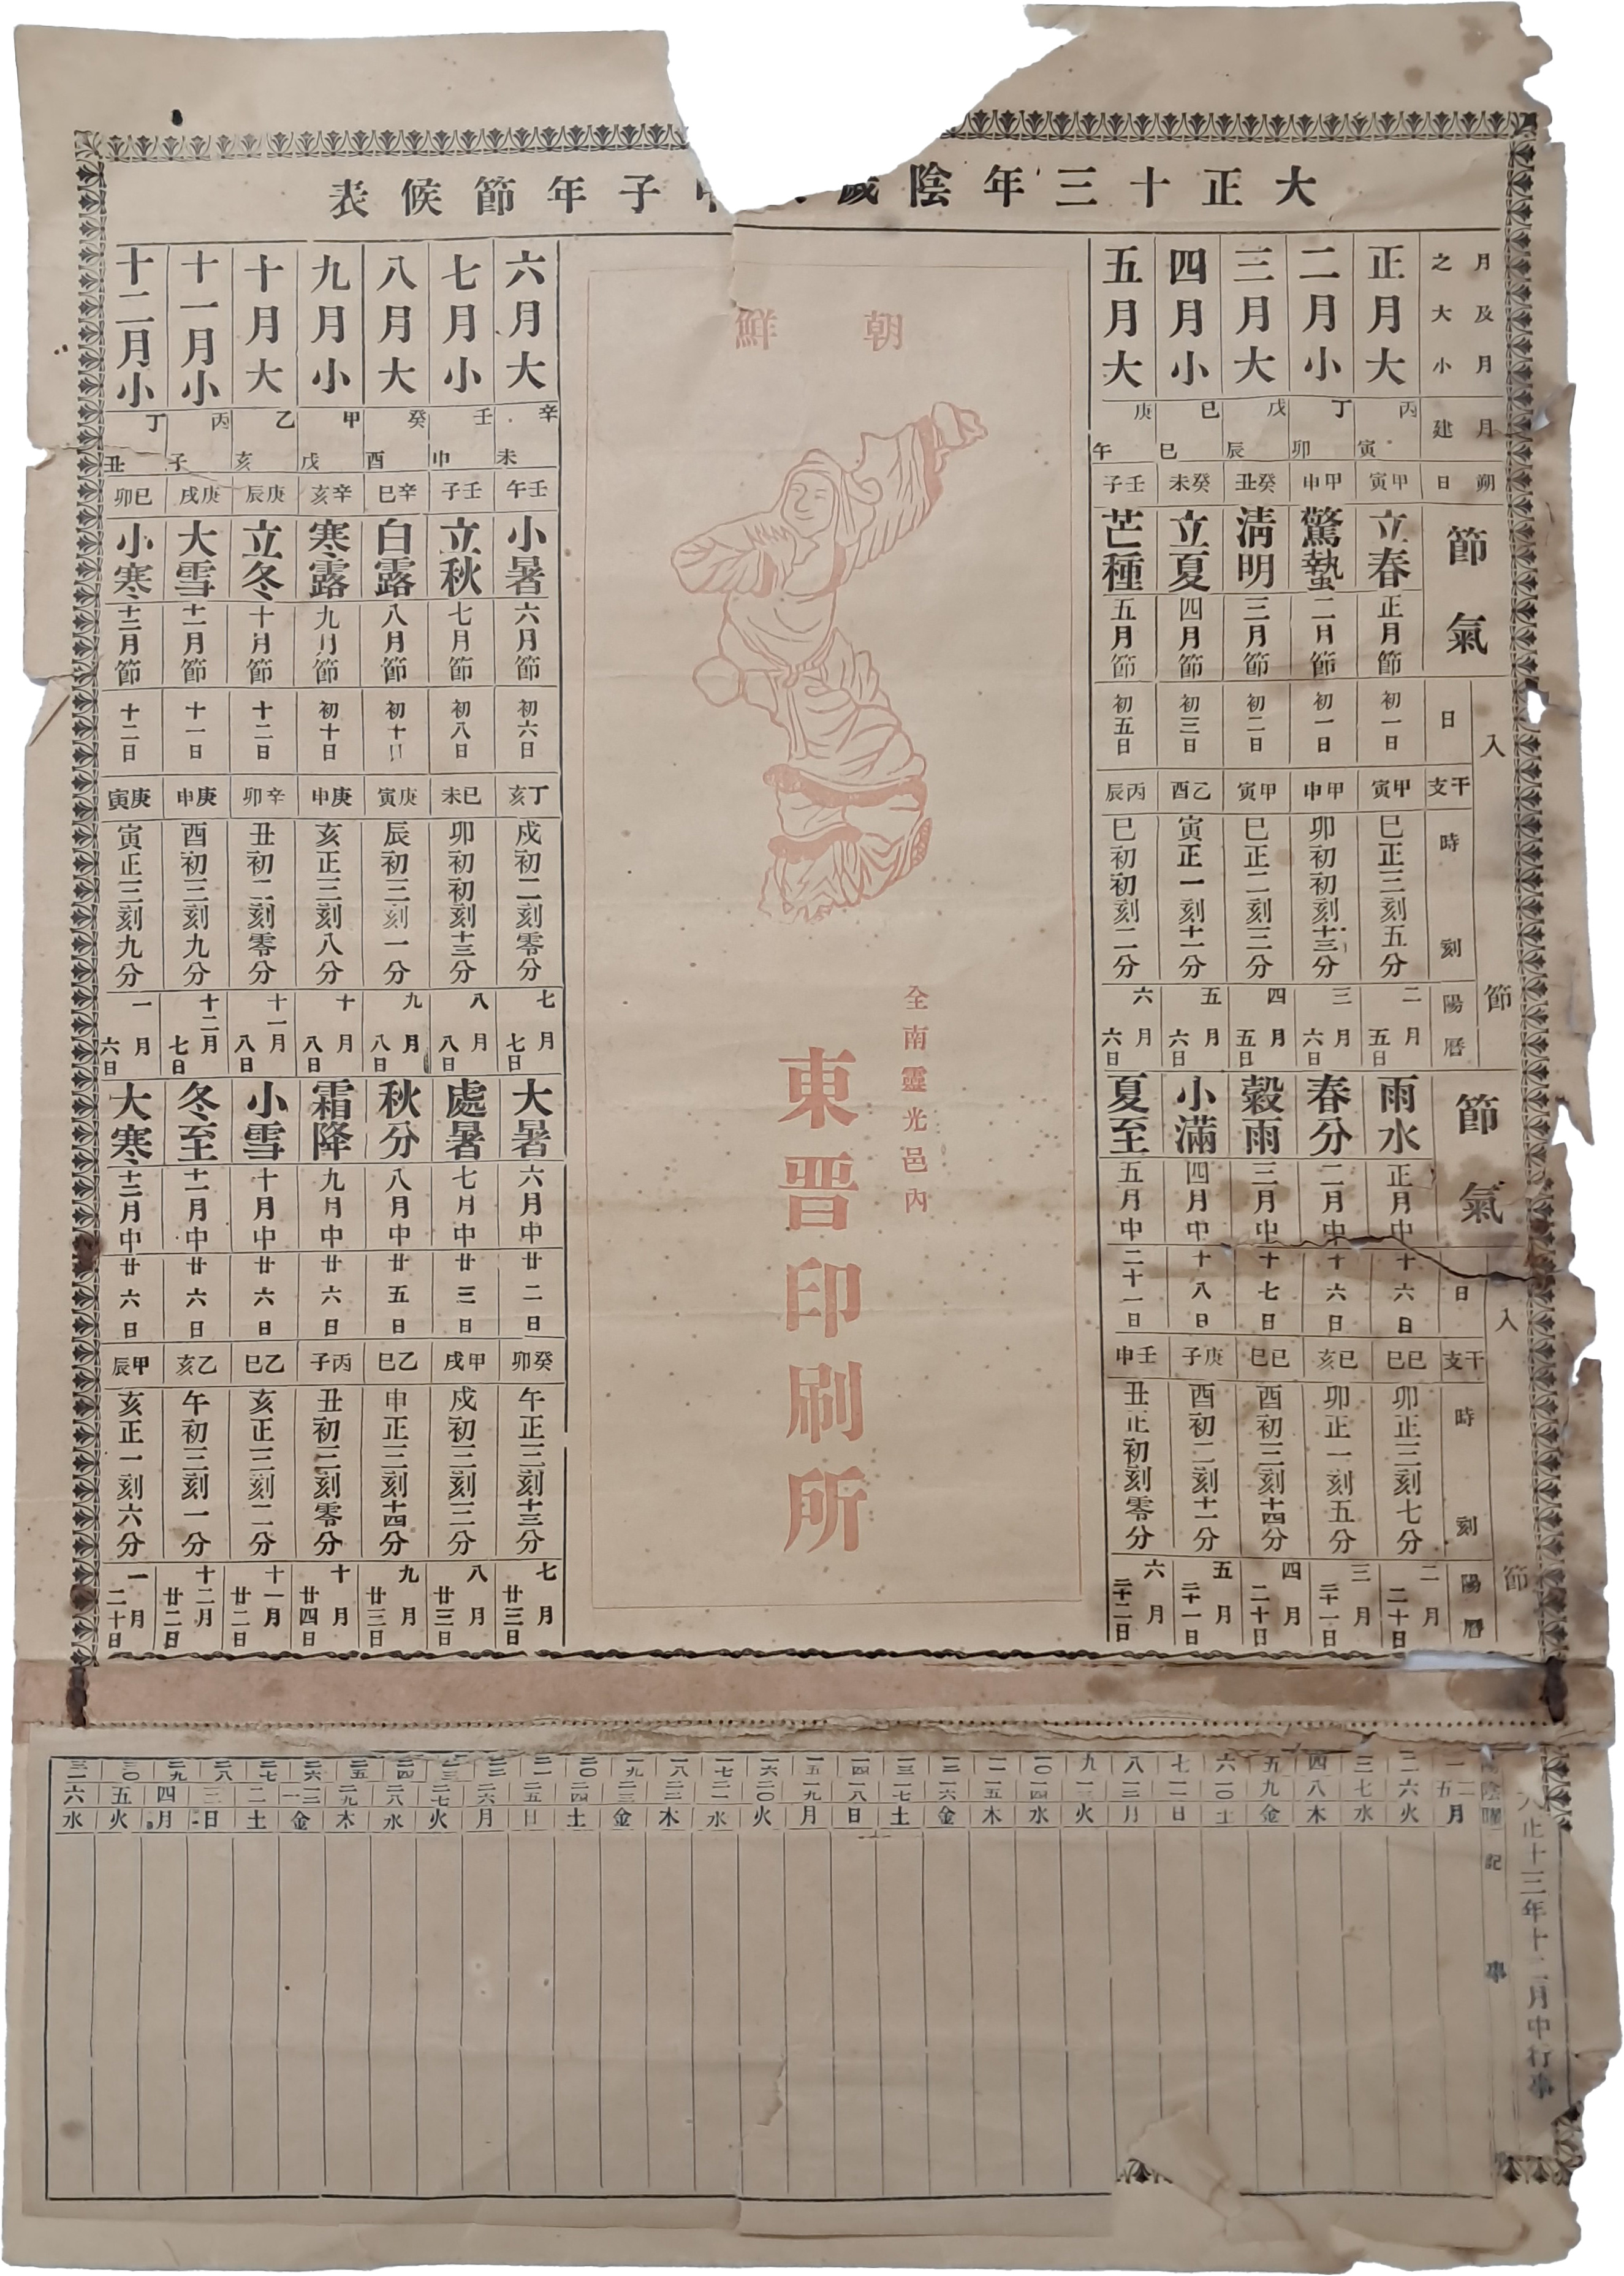 大正十三年陰歲 子年節候表
月及月之大小
月建
朔日
節氣
入節
日
干支
時刻
陽曆
節氣
入節
日
干支
時刻
陽曆
正月大 丙寅 甲寅 立春 正月節 初一日 甲寅 巳正三刻五分 二月五日 雨水 正月中 十六日 己巳 卯正三刻七分 二月二十日
二月小 丁卯 甲申 驚蟄 二月節 初一日 甲申 卯初初刻十三分 三月六日 春分 二月中 十六日 己亥 卯正一刻五分 三月二十一日
三月大 戊辰 癸丑 淸明 三月節 初二日 甲寅 巳正二刻三分 四月五日 穀雨 三月中 十七日 己巳 酉初三刻十四分 四月二十日
四月小 己巳 癸未 立夏 四月節 初三日 乙酉 寅正一刻十一分 五月六日 小滿 四月中 十八日 庚子 酉初二刻十一分 五月二十一日
五月大 庚午 壬子 芒種 五月節 初五日 丙辰 巳初初刻二分 六月六日 夏至 五月中 二十一日 壬申 丑正初刻零分 六月二十二日
朝鮮
全南靈光邑內
東晋印刷所
六月大 辛未 壬午 小暑 六月節 初六日 丁亥 戌初二刻零分 七月七日 大暑 六月中 廿二日 癸卯 午正三刻十三分 七月廿三日
七月小 壬申 壬子 立秋 七月節 初八日 己未 卯初初刻十三分 八月八日 處暑 七月中 廿三日 甲戌 戌初三刻三分 八月廿三日
八月大 癸酉 辛巳 白露 八月節 初十日 庚寅 辰初三刻一分 九月八日 秋分 八月中 廿五日 乙巳 申正三刻十四分 九月廿三日
九月小 甲戌 辛亥 寒露 九月節 初十日 庚申 亥正三刻八分 十月八日 霜降 九月中 廿六日 丙子 丑初三刻零分 十月廿四日
十月大 乙亥 庚辰 立冬 十月節 十二日 辛卯 丑初二刻零分 十一月八日 小雪 十月中 廿六日 乙巳 亥正三刻二分 十一月廿二日
十一月小 丙子 庚戌 大雪 十一月節 十一日 庚申 酉初三刻九分 十二月七日 冬至 十一月中 廿六日 乙亥 午初三刻一分 十二月廿二日
十二月小 丁丑 己卯 小寒 十二月節 十二日 庚寅 寅正三刻九分 一月六日 大寒 十二月中 廿六日 甲辰 亥正一刻六分 一月二十日
大正十三年十二月中行事
陽 陰 曜 記事
一 二 三 四 五 六 七 八 九 一〇 一一 一二 一三 一四 一五 一六 一七 一八 一九 二〇 二一 二二 二三 二四 二五 二六 二七 二八 二九 三〇 三一
五 六 七 八 九 一〇 一一 一二 一三 一四 一五 一六 一七 一八 一九 二〇 二一 二二 二三 二四 二五 二六 二七 二八 二九 一 二 三 四 五 六
月 火 水 木 金 土 日 月 火 水 木 金 土 日 月 火 水 木 金 土 日 月 火 水 木 金 土 日 月 火 水